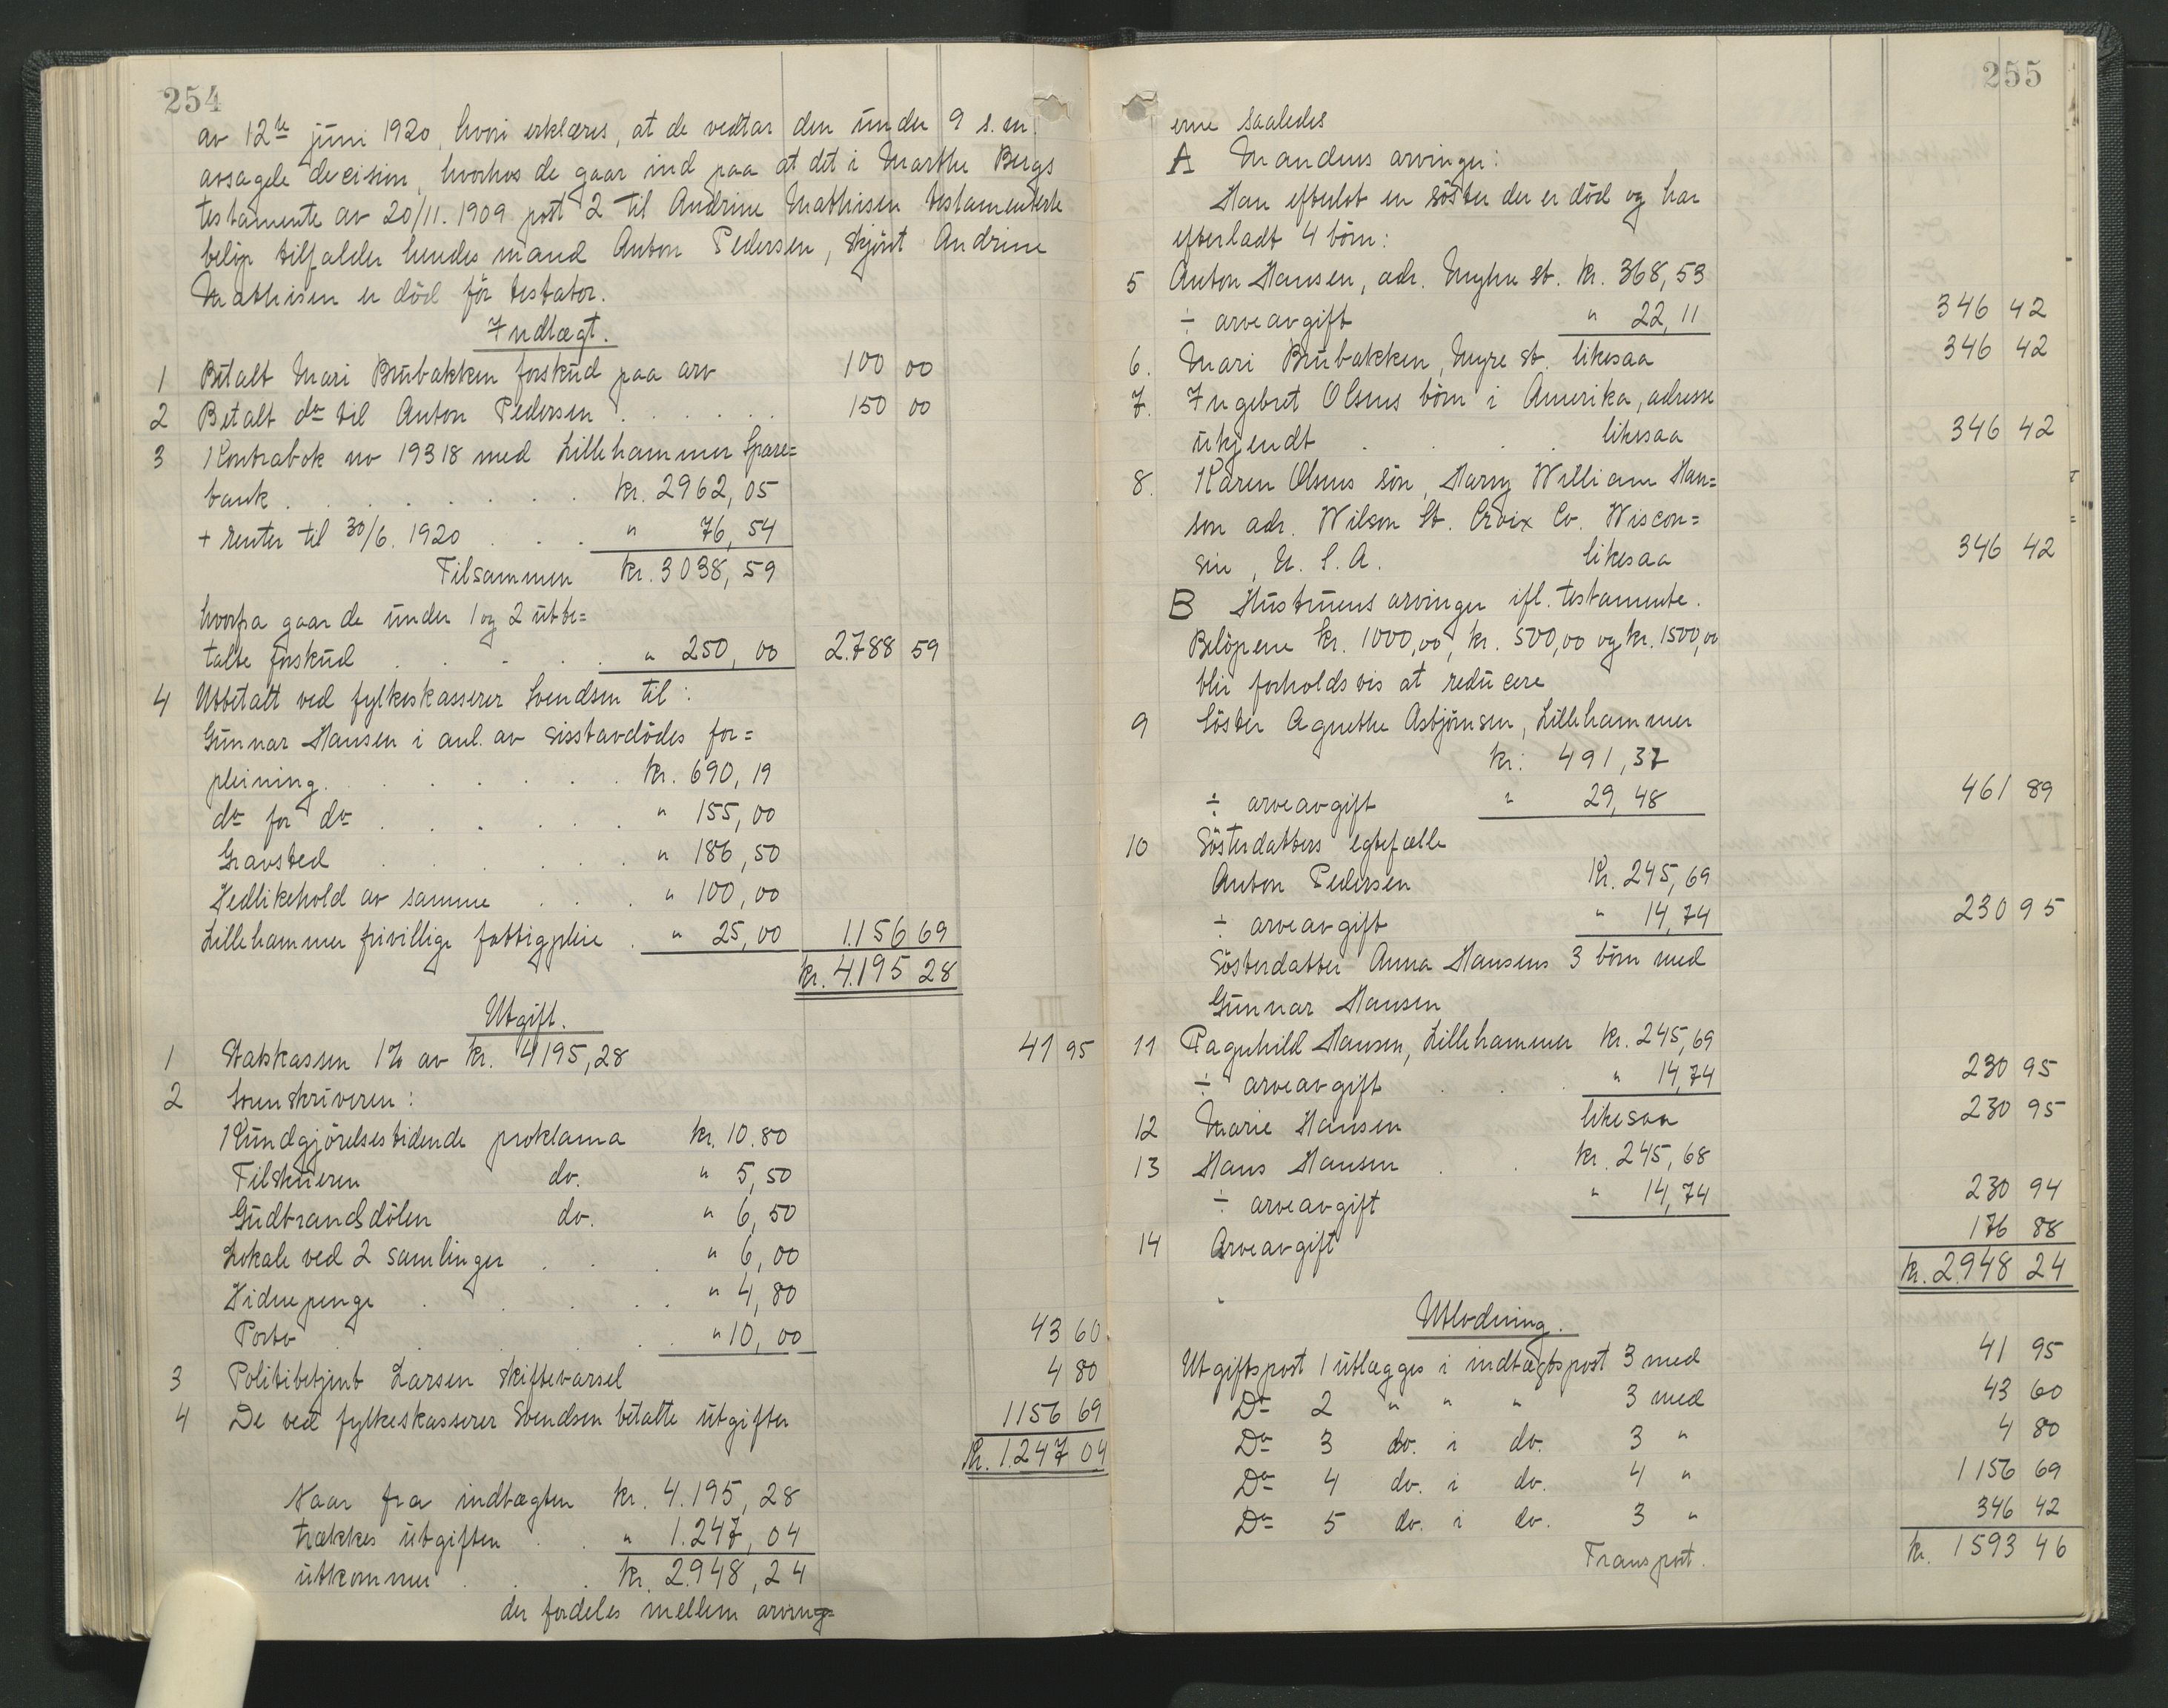 254
av 12te juni 1920, hvori erklæres, at de vedtar den under 9 s.m.
avsagde decision, hvorhos de gaar ind paa at det i Marthe Bergs
testamente av 20/11. 1909 post 2 til Andrine Mathisen testamenterte
beløp tilfalder hendes mand Anton Pedersen, skjønt Andrine
Mathisen er død før testator.
Indtægt.
1 Betalt Mari Brubakken forskud paa arv 100 00
2 Betalt do til Anton Pedersen . . . . . 150 00
3 Kontrabok no 19318 med Lillehammer Spare=
bank . . . . . . . kr. 2962,05
+ renter til 30/6. 1920 . . . " 76,54
Tilsammen kr. 3038,59
hvorfra gaar de under 1 og 2 utbe=
talte forskud . . . . . " 250,00 2.788 59
4 Utbetalt ved fylkeskasserer Svendsen til :
Gunnar Hansen i anl. av sisstavdødes for=
pleining. . . . . . . kr. 690,19
do for do . . . . . . " 155,00
Gravsted . . . . . " 186,50
Vedlikehold av samme . . . " 100,00
Lillehammer frivillige fattigpleie . " 25,00 1.156 69
kr. 4.195 28
Utgift.
1 Statskassen 1% av kr. 4195,28 41 95
2 Sorenskriveren :
Kundgjørelsestidende proklama kr. 10.80
Tilskueren do. " 5,50
Gudbrandsdølen do. " 6,50
Lokale ved 2 samlinger . . . " 6,00
Vidnepenge . . . . " 4,80
Porto . . . . " 10,00 43 60
3 Politibetjent Larsen skiftevarsel 4 80
4 De ved fylkeskasserer Svendsen betalte utgifter 1156 69
Kr. 1.247 04
Naar fra indtægten kr. 4.195,28
trækkes utgiften . . " 1.247,04
utkommer . . . kr. 2.948,24
der fordeles mellem arving=
255
erne saaledes
A Mandens arvinger :
Han efterlot en søster der er død og har
efterladt 4 børn :
5 Anton Hansen, adr. Myhre st. kr. 368,53
÷ arveavgift " 22,11 346 42
6. Mari Brubakken, Myre st. likesaa 346 42
7. Ingebret Olsens børn i Amerika, adresse
ukjendt . . . likesaa 346 42
8. Karen Olsens søn, Harry William Han=
son adr. Wilson St. Croix Co. Wiscon=
sin, U. S. A. likesaa 346 42
B Hustruens arvinger ifl. testamente.
Beløpene kr. 1000,00, kr. 500,00 og kr. 1500,00
blir forholdsvis at reducere
9 Søster Agnethe Asbjørnsen, Lillehammer
kr. 491,37
÷ arveavgift " 29,48 461 89
10 Søsterdatters egtefælle
Anton Pedersen Kr. 245,69
÷ arveavgift " 14,74 230 95
Søsterdatter Anna Hansens 3 børn med
Gunnar Hansen
11 Ragnhild Hansen, Lillehammer kr. 245,69
÷ arveavgift . . " 14,74 230 95
12 Marie Hansen likesaa 230 95
13 Hans Hansen . . kr. 245,68
÷ arveavgift " 14,74 230 94
14 Arveavgift 176 88
kr. 2.948 24
Utlodning.
Utgiftspost 1 utlægges i indtægtspost 3 med 41 95
Do 2 " " " 3 med 43 60
Do 3 do. i do. 3 " 4 80
Do 4 do. i do. 4 " 1156 69
Do 5 do. i do. 3 " 346 42
Transport. kr. 1593 46